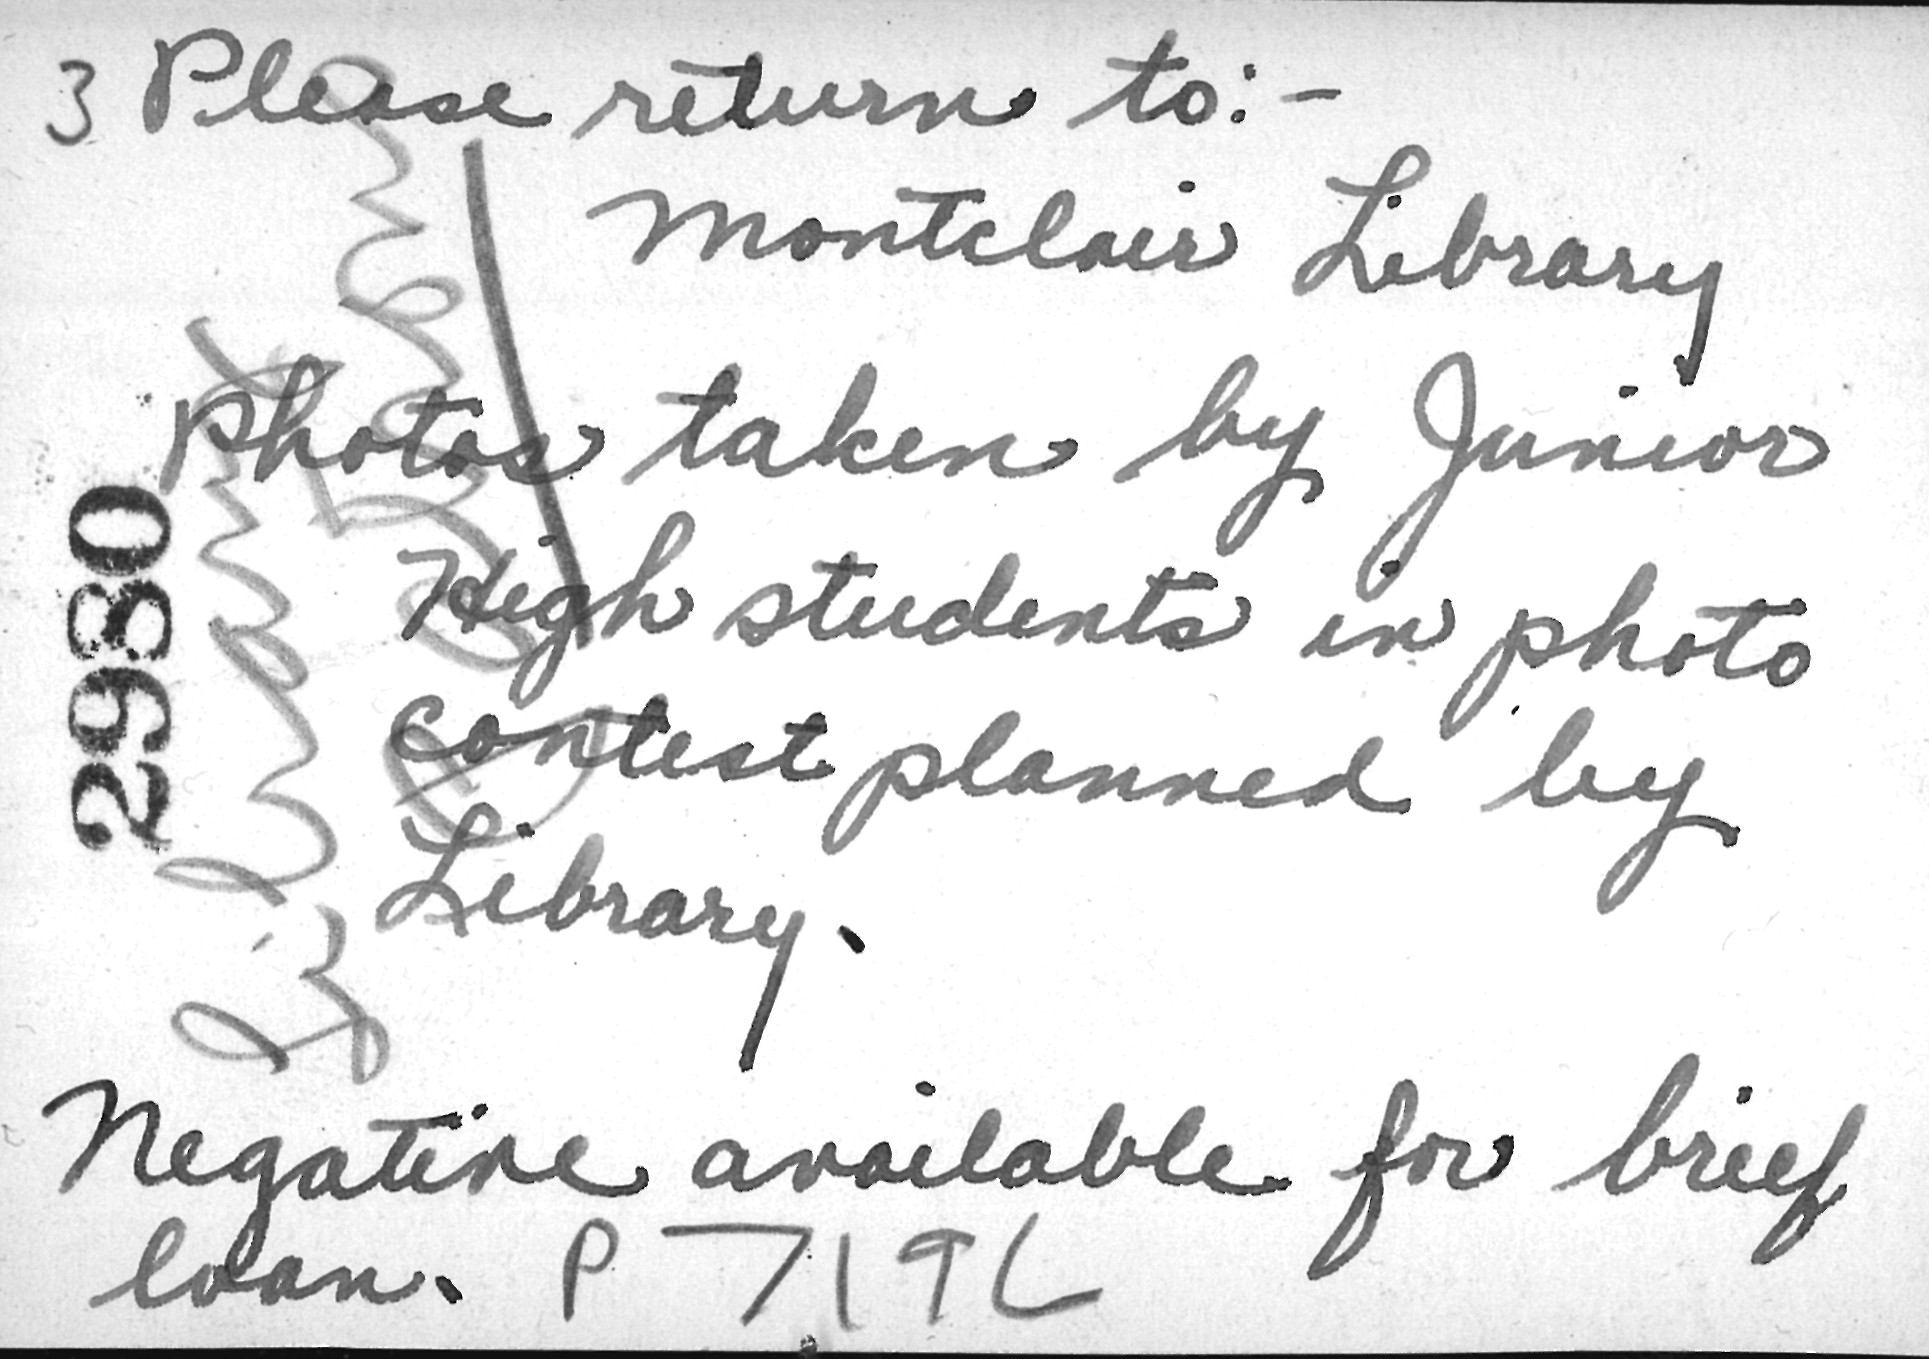 3 Please return to:-
Montclair Library
Photos taken by Junior
High students in photo
contest planned by
Library.
Negative available for brief
loan. P 719L
2980